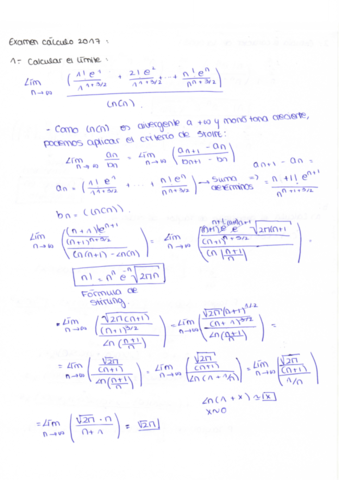 Examen cálculo 2017:
1= Calcular el límite:
Lím n→∞ ( 1! e^1 / 1^{1+3/2} + 2! e^2 / 1^{1+3/2} + ... + n! e^n / n^{n+3/2} ) / ln(n)
- Como ln(n) es divergente a +∞ y monótona creciente,
podemos aplicar el criterio de Stolz:
Lím n→∞ an/bn = Lím n→∞ (an+1 - an / bn+1 - bn)
an+1 - an =
an = ( 1! e^1 / 1^{1+3/2} + ... + n! e^n / n^{n+3/2} ) → suma de términos => = n+1! e^{n+1} / n^{n+1+3/2}
bn = (ln(n))
Lím n→∞ ( (n+1)! e^{n+1} / (n+1)^{n+3/2} ) / ( ln(n+1) - ln(n) ) = Lím n→∞ =
n! = n^n e^{-n} √2πn
Fórmula de
Stirling
• Lím n→∞ ( √2π(n+1) / (n+1)^{3/2} / ln(n+1/n) ) = Lím n→∞ ( √2π (n+1)^{1/2} / (n+1)^{3/2} / ln(n+1/n) ) =
= Lím n→∞ ( √2π / (n+1) / ln(n+1/n) ) = Lím n→∞ ( √2π / (n+1) / ln(1+1/n) ) = Lím n→∞ ( √2π / (n+1) / 1/n )
ln(1+x) ≈ x
x→0
= Lím n→∞ ( √2π · n / n+1 ) = √2π